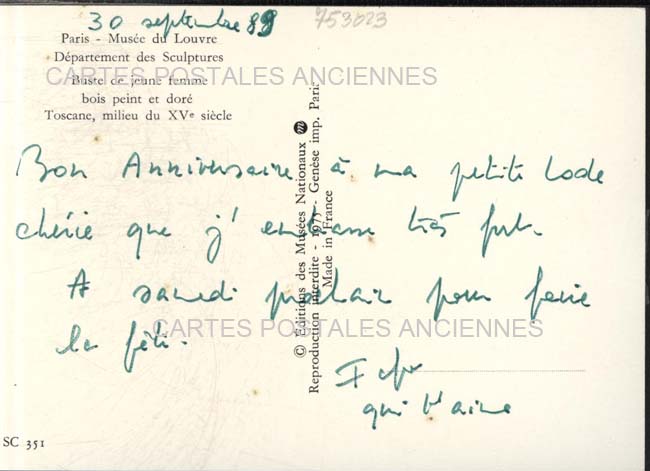 30 septembre 89
753023
Paris - Musée du Louvre
Département des Sculptures
CARTES POSTALES ANCIENNES
Buste de jeune femme
bois peint et doré
Toscane, milieu du XVe siècle
Bon Anniversaire à ma petite
chérie que j'embrasse très fort.
A samedi prochain pour faire
la fête.
CARTES POSTALES ANCIENNES
qui t'aime
© Editions des Musées Nationaux m
Reproduction interdite - 1975 - Genèse imp. Paris
Made in France
SC 351